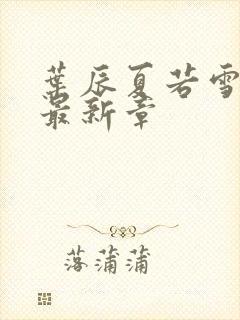 葉辰夏若雪
最新章
落蒲蒲